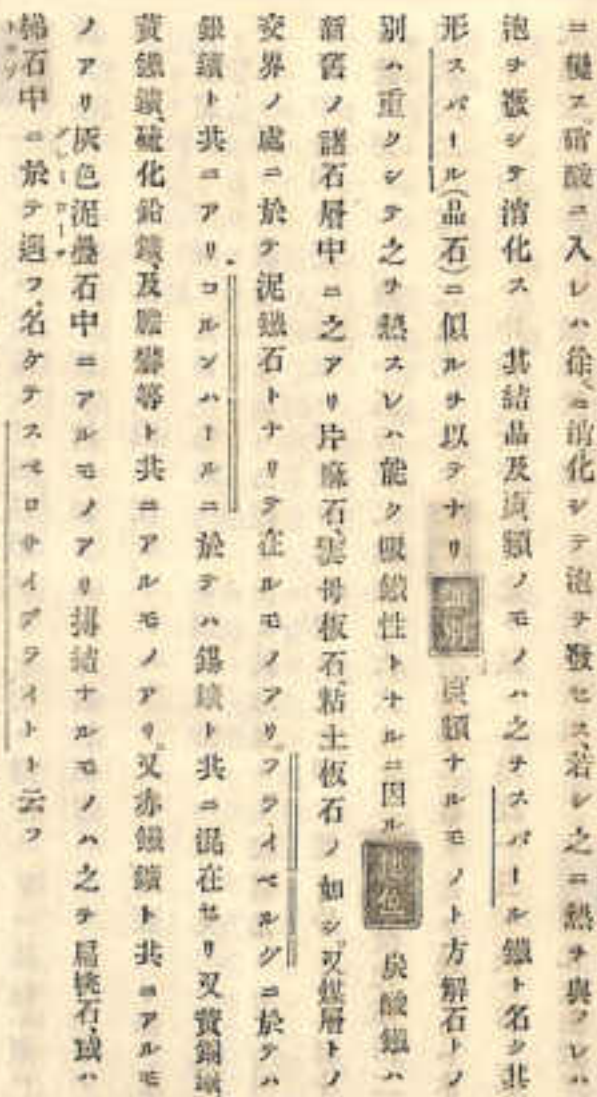 ニ變ス硝酸ニ入レハ徐ニ消化シテ泡ヲ發セス、若シ之ニ熱ヲ與フレハ
泡ヲ發シテ消化ス　其結晶及ノモノハ之ヲスパール鐵ト名ク其
形スパール(晶石)ニ似ルヲ以テナリ　ナルモノト方解石トノ
別ハ重クシテ之ヲ熱スレハ能ク吸鐵性トナルニ因ル　炭酸鐵ハ
新舊ノ諸石層中ニ之アリ片麻石、雲母板石、粘土板石ノ如シ又煤層トノ
交界ノ處ニ於テ泥鐵石トナリテ在ルモノアリ。フライベルグニ於テハ
銀鑛ト共ニアリ。コルンハールニ於テハ錫鑛ト共ニ混在セリ又黄銅鑛
黄鐵鑛、硫化鉛鑛、及膽礬等ト共ニアルモノアリ。又赤鐵鑛ト共ニアルモ
ノアリ灰色泥盤石中ニアルモノアリナルモノハ之ヲ扁桃石、或ハ
石中ニ於テ遇フ、名ケテスペロサイデライトト云フ